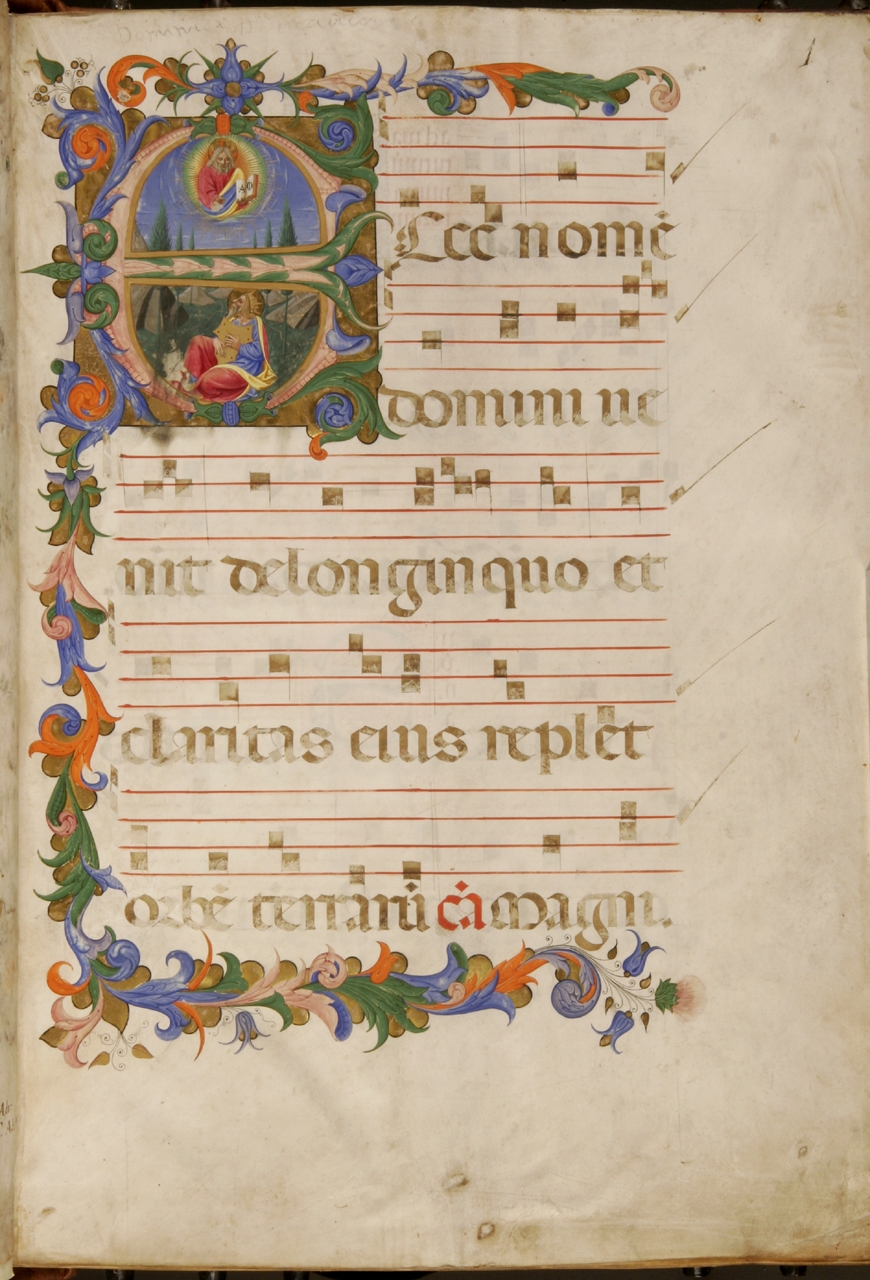 Ecce nomē
domini ue
nit delonginquo et
claritas eius replet
orbē terrarū cā Magni.